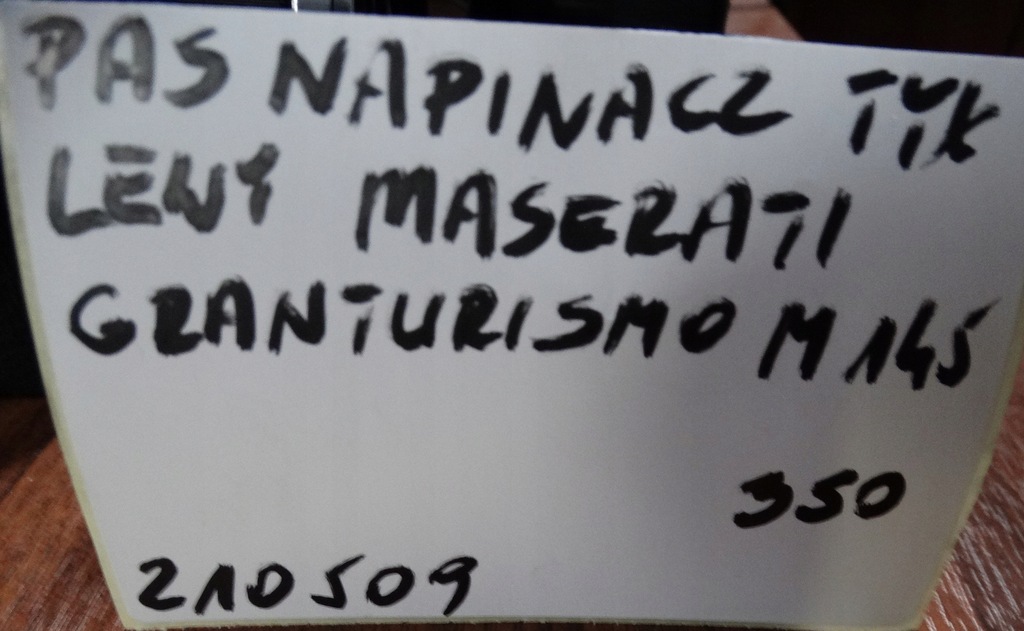 PAS NAPINACZ TYŁ
LEWY MASERATI
GRANTURISMO M145
350
210509